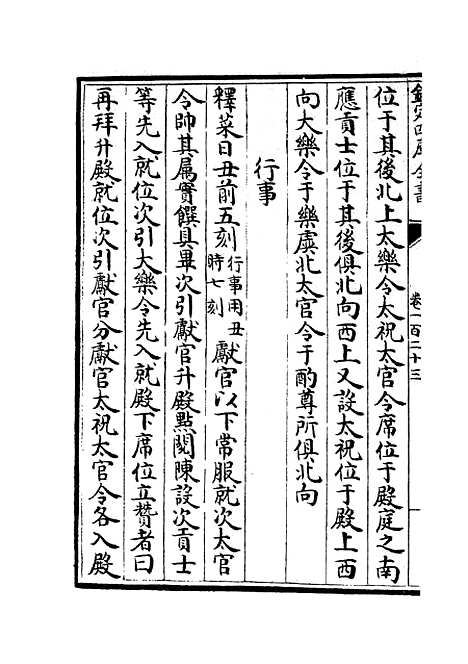 欽定四庫全書
卷一百二十三
位于其後北上太樂令太祝太官令席位于殿庭之南
應貢士位于其後俱北向西上又設太祝位于殿上西
向大樂令于樂虡北太官令于酌尊所俱北向
行事
釋菜日丑前五刻行事用丑時七刻獻官以下常服就次太官
令帥其屬實饌具畢次引獻官升殿點閱陳設次貢士
等先入就位次引大樂令先入就殿下席位立贊者曰
再拜升殿就位次引獻官分獻官太祝太官令各入殿